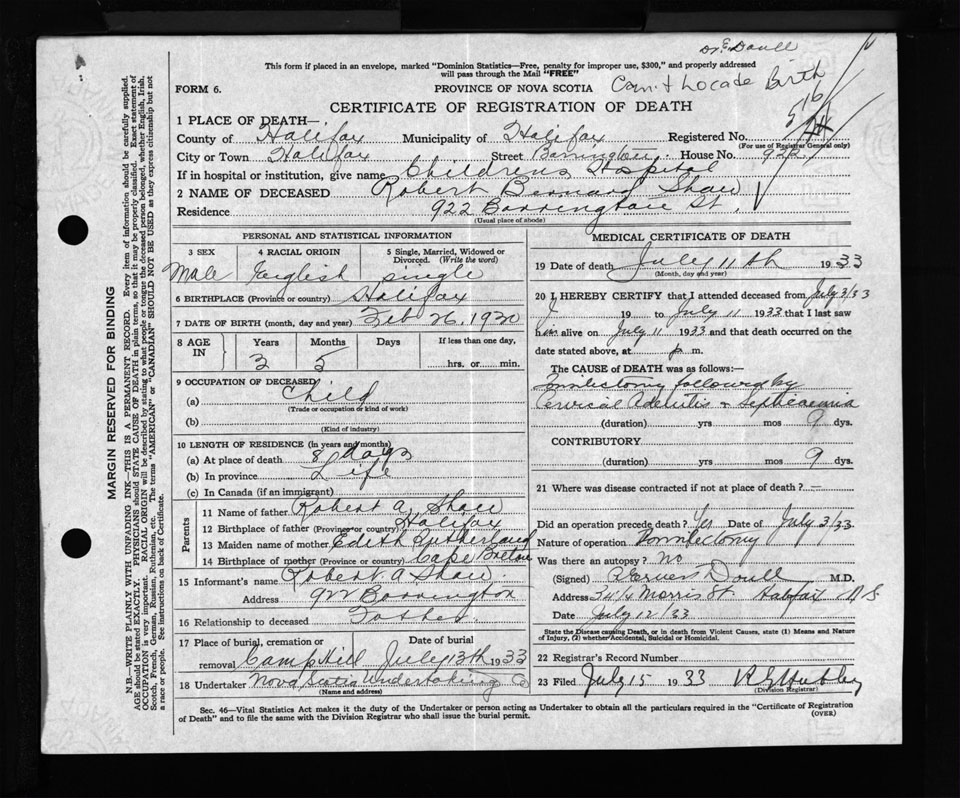 Dr. Doull
This form if placed in an envelope, marked "Dominion Statistics—Free, penalty for improper use, $300," and properly addressed
will pass through the Mail "FREE"
FORM 6.
PROVINCE OF NOVA SCOTIA
Can't Locade Birth
CERTIFICATE OF REGISTRATION OF DEATH
1 PLACE OF DEATH—
County of Halifax Municipality of Halifax Registered No.
(For use of Registrar General only)
City or Town Halifax Street Barrington House No. 922
If in hospital or institution, give name Childrens Hospital
2 NAME OF DECEASED Robert Bernard Shaw
Residence 922 Barrington St.
(Usual place of abode)
PERSONAL AND STATISTICAL INFORMATION
3 SEX 4 RACIAL ORIGIN 5 Single, Married, Widowed or Divorced. (Write the word)
Male English single
6 BIRTHPLACE (Province or country) Halifax
7 DATE OF BIRTH (month, day and year) Feb 26, 1930
8 AGE IN Years Months Days If less than one day,
3 5 hrs. or min.
9 OCCUPATION OF DECEASED
(a) Child
(Trade or occupation or kind of work)
(b)
(Kind of industry)
10 LENGTH OF RESIDENCE (in years and months)
(a) At place of death 8 days
(b) In province Life
(c) In Canada (if an immigrant)
Parents
11 Name of father Robert A. Shaw
12 Birthplace of father (Province or country) Halifax
13 Maiden name of mother Edith Sutherland
14 Birthplace of mother (Province or country) Cape Breton
15 Informant's name Robert A Shaw
Address 922 Barrington
16 Relationship to deceased Father
17 Place of burial, cremation or Date of burial
removal Camp Hill July 13th 1933
18 Undertaker Nova Scotia Undertaking Co
(Name and address)
MEDICAL CERTIFICATE OF DEATH
19 Date of death July 11th 1933
(Month, day and year)
20 I HEREBY CERTIFY that I attended deceased from July 3/33
19 to July 11 1933 that I last saw
him alive on July 11 1933 and that death occurred on
date stated above, at p m.
The CAUSE OF DEATH was as follows:—
Tonsilectomy followed by
Cervical Adenitis & Septicaemia
(duration) yrs mos 9 dys.
CONTRIBUTORY
(duration) yrs mos 9 dys.
21 Where was disease contracted if not at place of death? —
Did an operation precede death? Yes Date of July 3/33
Nature of operation Tonsilectomy
Was there an autopsy? No
(Signed) Doull M.D.
Address 34 1/4 Morris St Halifax N S
Date July 12/33
State the Disease causing Death, or in death from Violent Causes, state (1) Means and
Nature of Injury, (2) whether Accidental, Suicidal or Homicidal.
22 Registrar's Record Number
23 Filed July 15 1933
(Division Registrar)
Sec. 46—Vital Statistics Act makes it the duty of the Undertaker or person acting as Undertaker to obtain all the particulars required in the "Certificate of Registration
of Death" and to file the same with the Division Registrar who shall issue the burial permit.
(OVER)
MARGIN RESERVED FOR BINDING
N.B.—WRITE PLAINLY WITH UNFADING INK—THIS IS A PERMANENT RECORD. Every item of information should be carefully supplied.
AGE should be stated EXACTLY. PHYSICIANS should STATE CAUSE OF DEATH in plain terms, so that it may be properly classified. Exact statement of
OCCUPATION is very important. RACIAL ORIGIN will be described by stating to what people or tongue the deceased person belonged, whether English, Irish,
Scotch, French, German, Russian, Ruthenian, etc. The terms "AMERICAN" or "CANADIAN" SHOULD NOT BE USED as they express citizenship but not
a race or people. See instructions on back of Certificate.